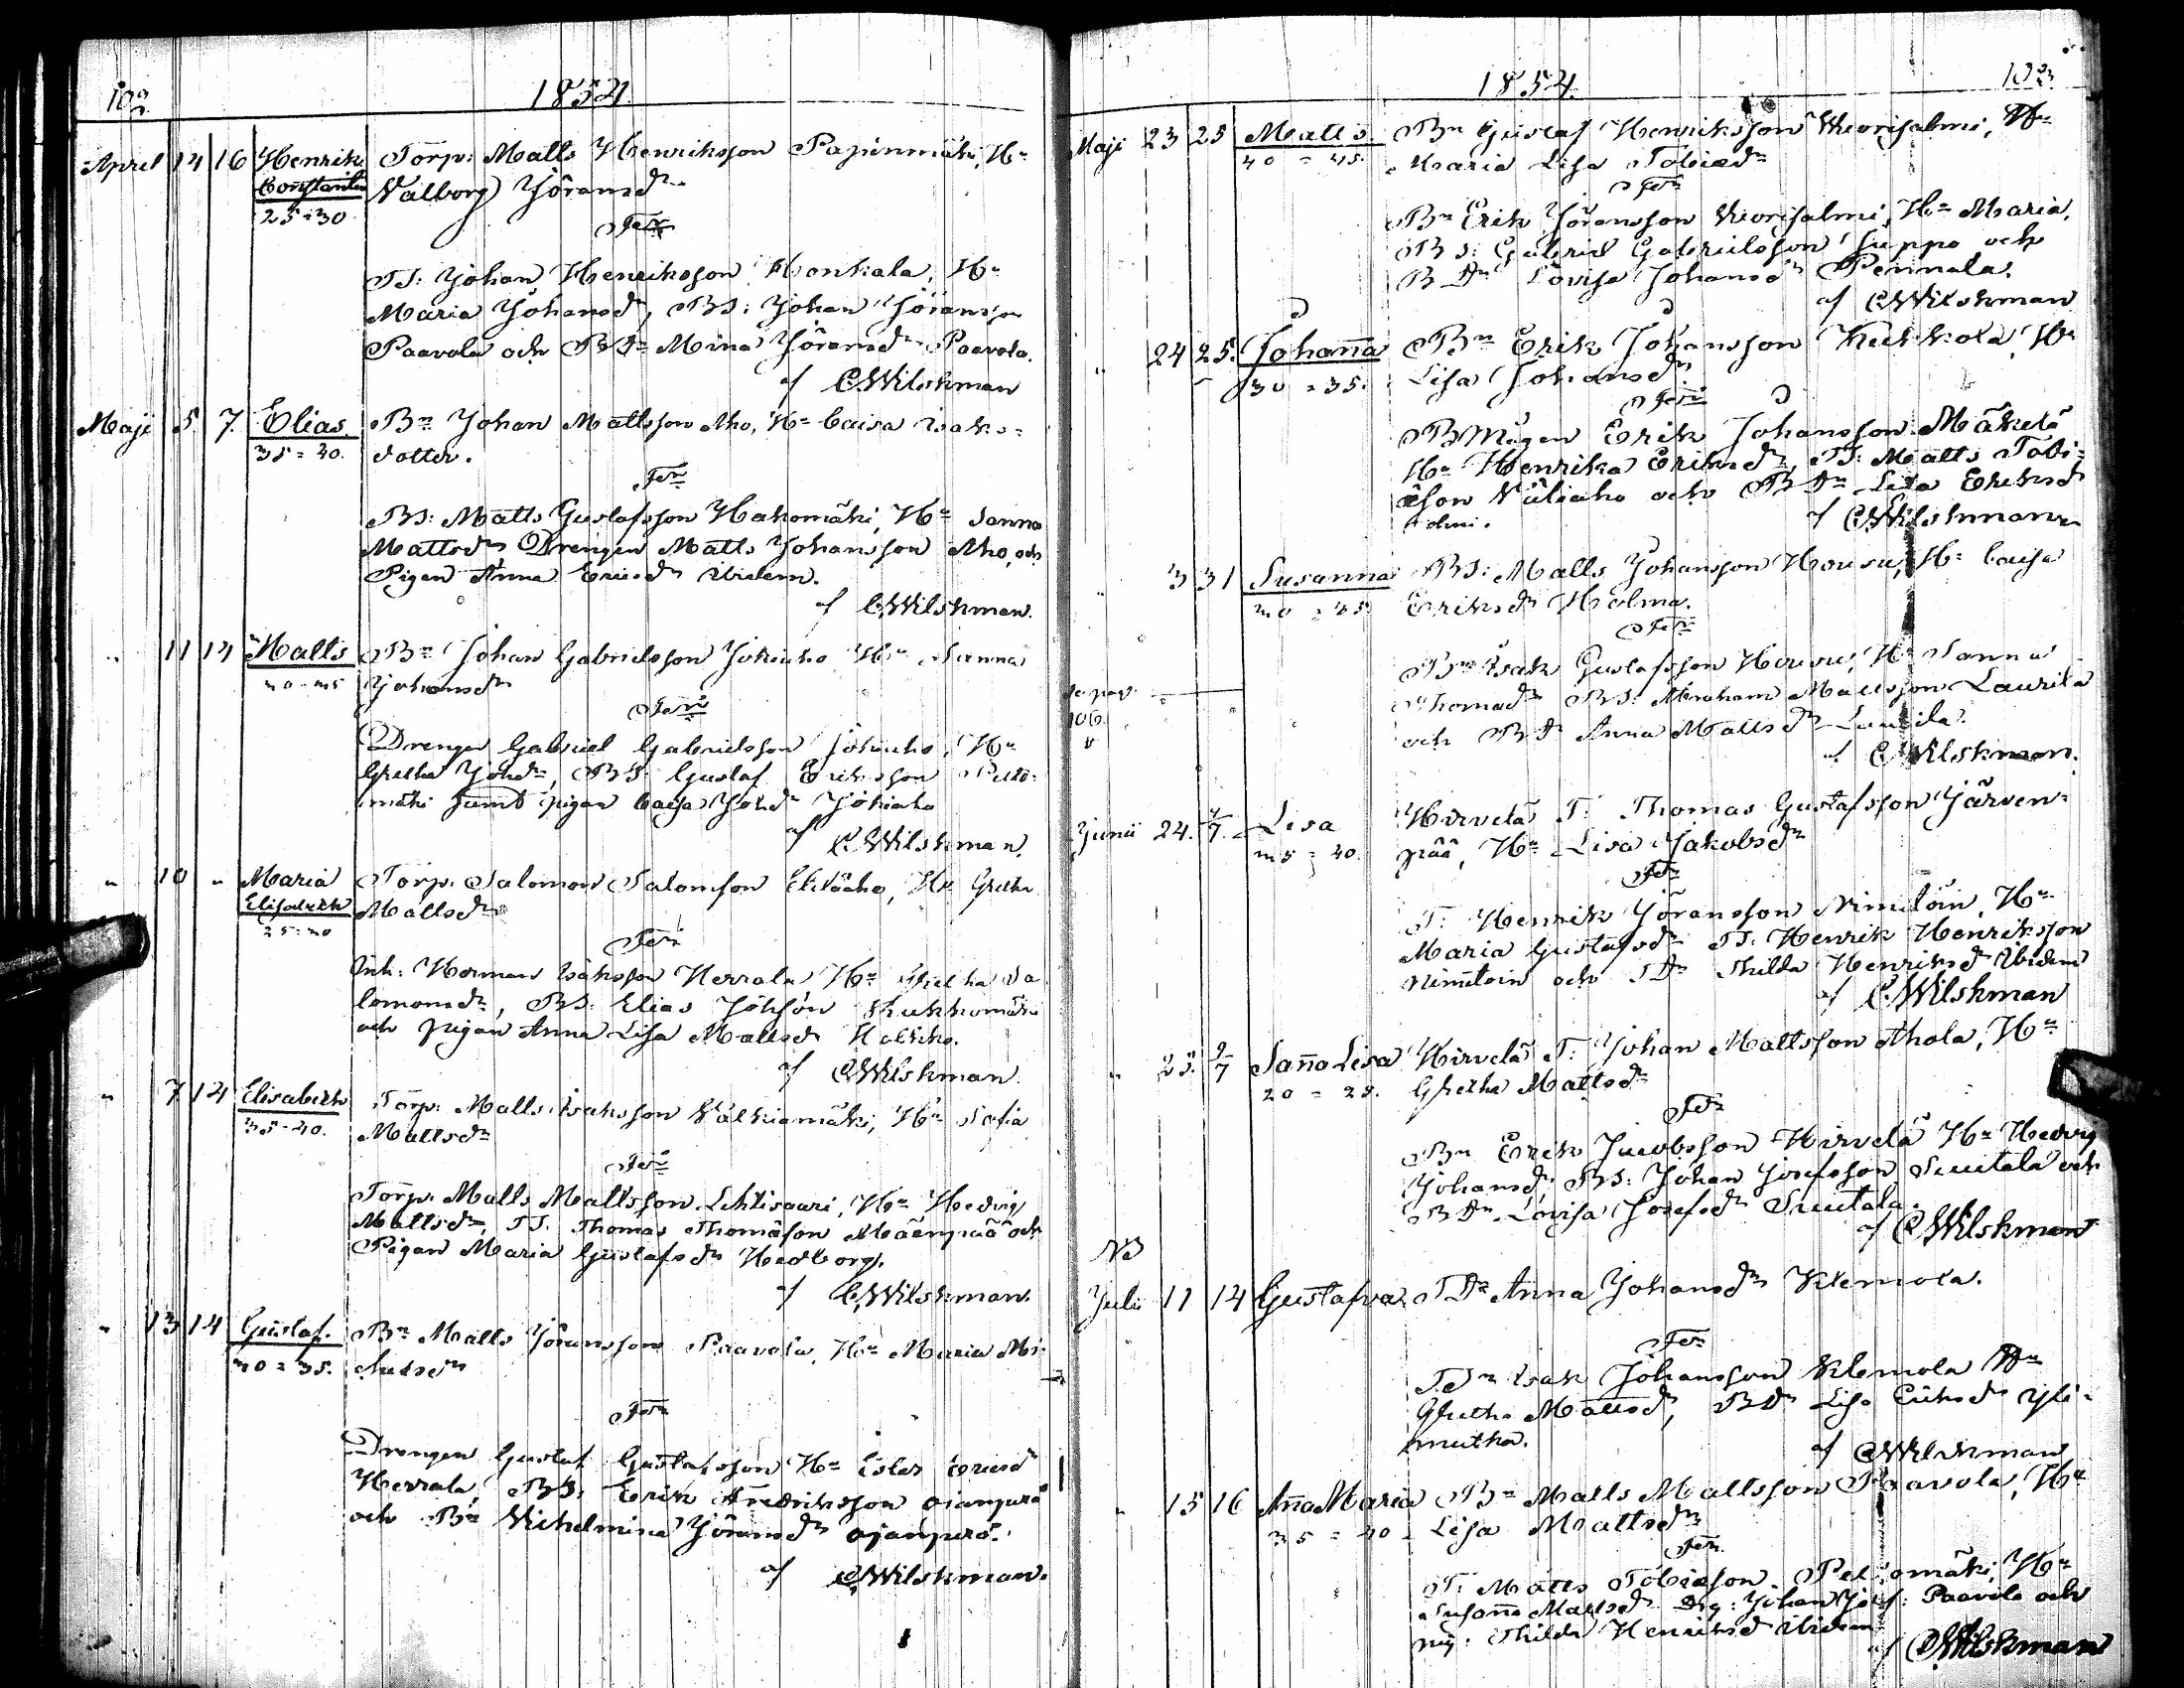 102
1854
April 14 16 Henrik Torp: Matts Henriksson Papinmäki, Hu
Constantin Valborg Jöransdr
25=30
Ferr
TS: Johan Henriksson Honkala, Hu
Maria Johansdr, BS: Johan Jöransson
Paavola och BDr Mina Jöransdr Paavola.
af CWilskman
Maji 5. 7. Elias. Bn Johan Mattsson Aho, Hu Caisa Isaks=
35=40. dotter.
Ferr
BS: Matts Gustafsson Hakomäki, Hu Sanna
Mattsdr Drengen Matts Johansson Aho, och
Pigan Anna Ericsdr ibidem.
af CWilskman.
" 11 14 Matts Bn Johan Gabrielsson Jokiaho Hu Sanna
Johansdr
Ferr
Drengen Gabriel Gabrielsson Jokiaho, Hu
Gretha Johdr, BS: Gustaf Eriksson
mäki samt pigan Caisa Johdr Jokiaho
af CWilskman.
" 10 " Maria Torp: Salomon Salomson Hu Gretha
Elisabeth Mattsdr
Ferr
Inh: Herman Isaksson Herrala Hu Gretha Sa
lomonsdr, BS: Elias Johsson Kukkomäki
och pigan Anna Lisa Mattsdr
af CWilskman.
" 7 14 Elisabeth Torp: Matts Isaksson Valkiamäki, Hu Sofia
35=40. Mattsdr
Ferr
Torp: Matts Mattsson Lehtisaari, Hu Hedvig
Mattsdr, TS. Thomas Thomasson Mäenpää och
Pigan Maria Gustafsdr Hedborg.
af CWilskman.
" 13 14 Gustaf. Bn Matts Jöransson Paavola, Hu Maria Mi
30=35. chelsdr
Ferr
Drengen Gustaf Gustafsson Hu Ester Ericsdr
Herrala, BS: Erik Fredriksson Ojanperä
och Bn Vilhelmina Jöransdr Ojanperä.
af CWilskman.
1854. 103
Maji 23 25 Matts. Bn Gustaf Henriksson Hu
40=45. Maria Lisa Tobiaedr
Ferr
Bn Erik Jöransson Hu Maria,
BS: Gabriel Gabrielsson Juppo och
BDr Lovisa Johansdr Pennala.
af CWilskman
" 24 25. Johanna Bn Erik Johansson Hu
30=35. Lisa Johansdr
Ferr
BMågen Erik Johansson Mäkelä
Hu Henrika Eriksdr, TS: Matts Tobi=
æson Väliaho och BDr Lisa Eriksdr
af CWilskman
" 3 31 Susanna BS: Matts Johansson Housu, Hu Caisa
Eriksdr Holma.
Ferr
Bn Isak Gustafsson Housu, Hu Sanna
Thomædr BS: Abraham Mattsson Laurila
och BDr Anna Mattsdr Laurila.
af CWilskman.
Se pag.
106.
Junii 24. 4/7. Lisa Hirvelä T: Thomas Gustafsson Järven=
35=40. pää, Hu Lisa Jakobsdr
Ferr
T: Henrik Jöransson Nimetöin, Hu
Maria Gustafsdr TS: Henrik Henriksson
Nimetoin och TDr Thilda Henriksdr Ibidem
af CWilskman
" 25. 9/7 Sanna Lisa Hirvelä T: Johan Mattsson Ahola, Hu
20=25. Gretha Mattsdr
Ferr
Bn Erik Jacobsson Hirvelä Hu Hedvig
Johansdr, BS: Johan Josefsson Suutala och
BDr Lovisa Josefsdr Suutala.
af CWilskman
NB
Julii 11 14 Gustafva TDr Anna Johansdr Klemola.
Ferr
Isak Johansson Klemola Hu
Gretha Mattsdr, BDr Lisa Eriksdr Yli=
mutka.
af CWilskman
" 15 16 Anna Maria Bn Matts Mattsson Paavola, Hu
35=40 Lisa Mattsdr
Ferr
T: Matts Tobiæson Hu
Susanna Mattsdr Drg: Johan Paavola och
pig: Thilda Henriksdr ibidem
af CWilskman